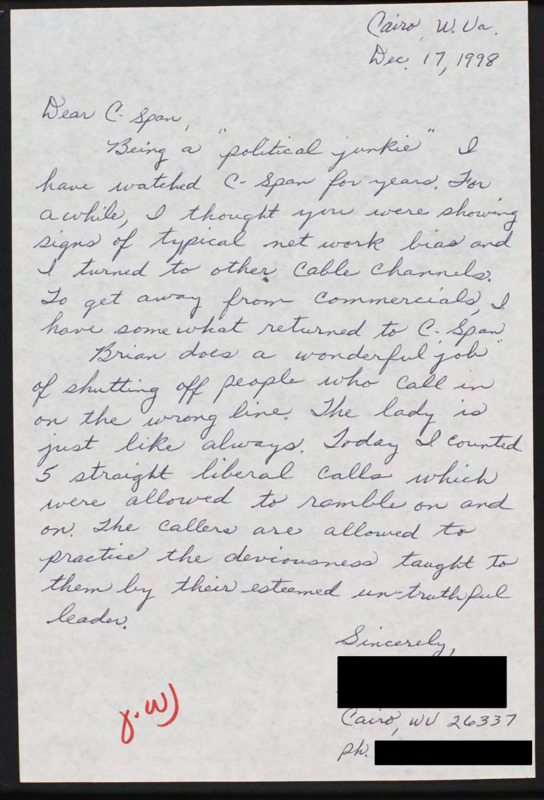 Cairo, W. Va.
Dec. 17, 1998
Dear C-Span,
Being a "political junkie" I
have watched C-Span for years. For
awhile, I thought you were showing
signs of typical net work bias and
I turned to other cable channels.
To get away from commercials, I
have somewhat returned to C-Span
Brian does a wonderful "job"
of shutting off people who call in
on the wrong line. The lady is
just like always. Today I counted
5 straight liberal calls which
were allowed to ramble on and
on. The callers are allowed to
practice the deviousness taught to
them by their esteemed un-truthful
leader.
Sincerely,
Cairo, WV 26337
ph.